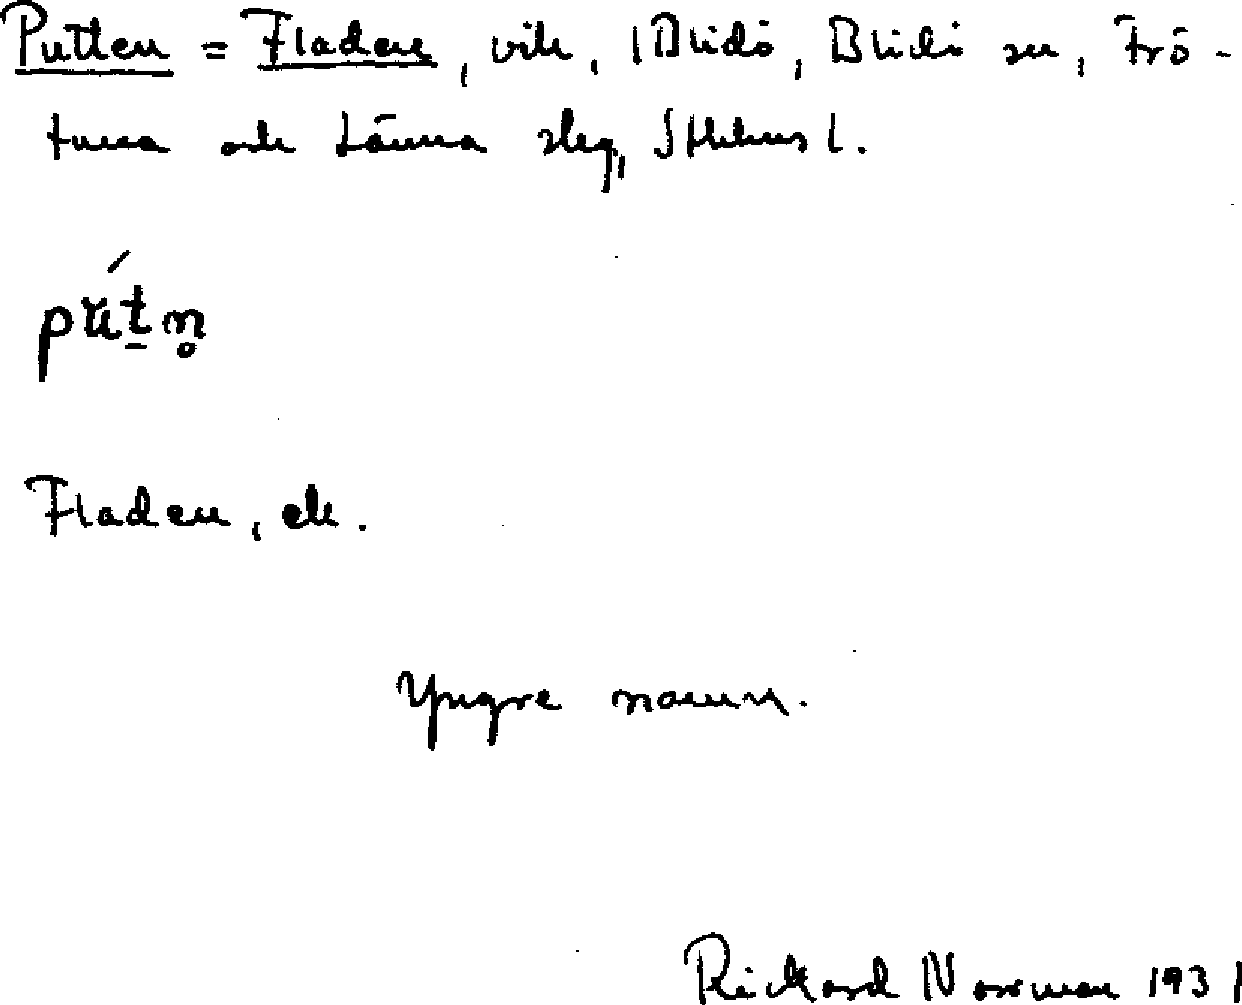 Putten = Fladen, vik, Blidö, Blidö sn, Frö-
tuna och Länna slg, Sthlms l.
pút̠n̥
Fladen, ek.
Yngre namn.
Rickard Norrman 1931